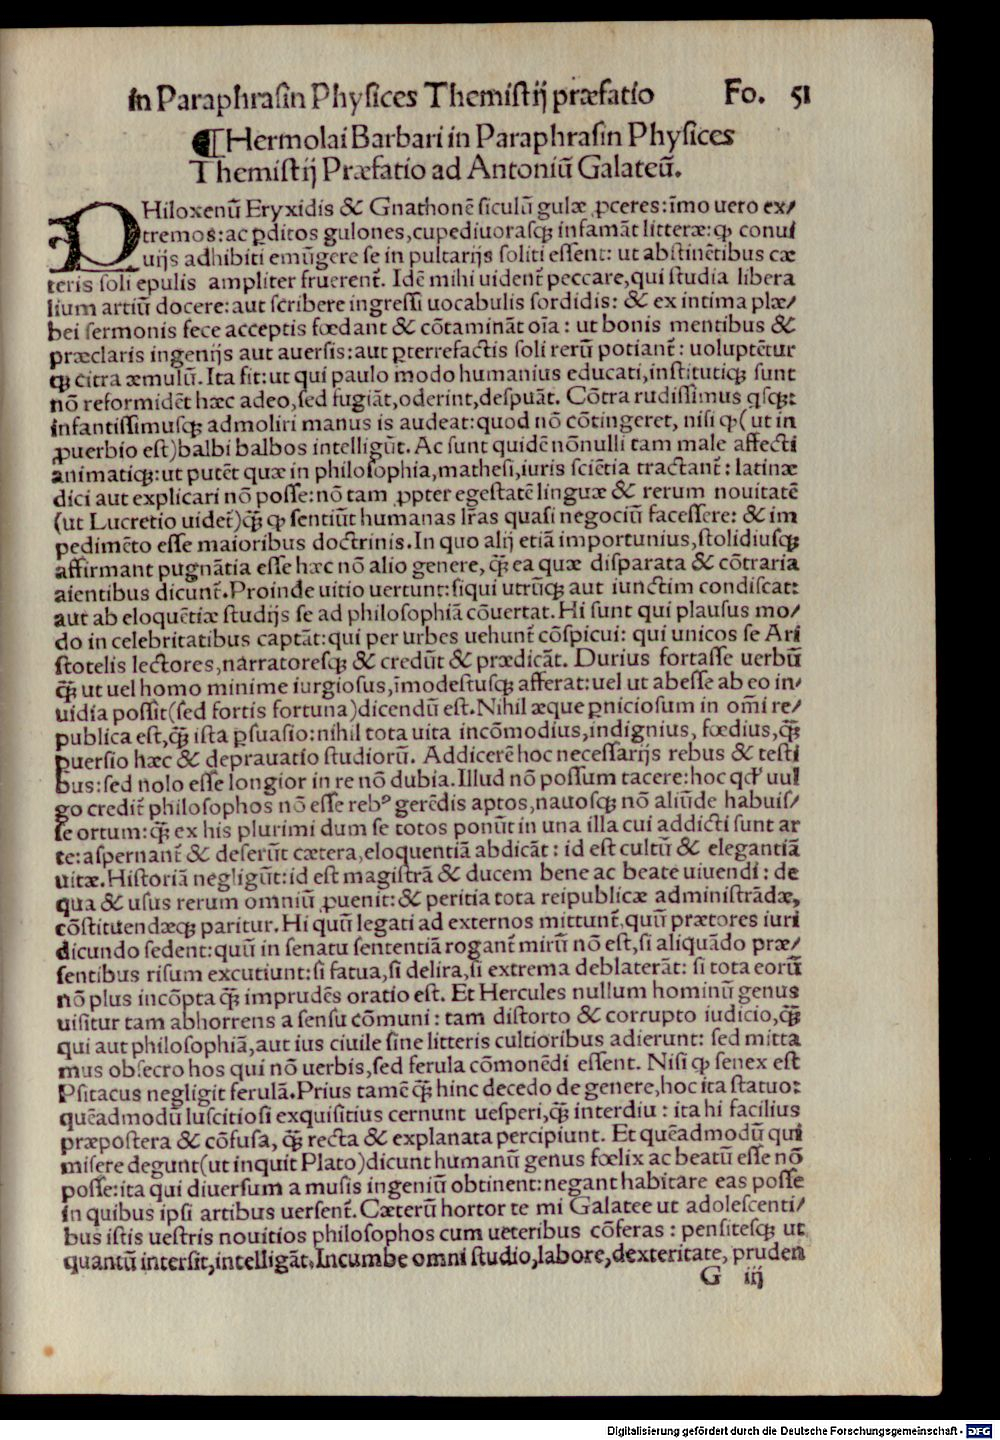 in Paraphrasin Physices Themistij præfatio Fo. 51
¶ Hermolai Barbari in Paraphrasin Physices
Themistij Præfatio ad Antoniū Galateū.
PHiloxenū Eryxidis & Gnathonē siculū gulæ ꝓceres: īmo uero ex/
tremos: ac ꝑditos gulones, cupediuorasqꝫ infamāt litteræ: ꝙ conui
uijs adhibiti emūgere se in pultarijs soliti essent: ut abstinētibus cæ
teris soli epulis ampliter fruerent̄. Idē mihi uident̄ peccare, qui studia libera
lium artiū docere: aut scribere ingressi uocabulis sordidis: & ex intima plæ/
bei sermonis fece acceptis fœdant & cōtamināt oīa: ut bonis mentibus &
præclaris ingenijs aut auersis: aut ꝑterrefactis soli rerū potiant̄: uoluptētur
qꝫ citra æmulū. Ita fit: ut qui paulo modo humanius educati, institutiqꝫ sunt
nō reformidēt hæc adeo, sed fugiāt, oderint, despuāt. Cōtra rudissimus qsqꝫ:
infantissimusqꝫ admoliri manus is audeat: quod nō cōtingeret, nisi ꝙ (ut in
ꝓuerbio est) balbi balbos intelligūt. Ac sunt quidē nōnulli tam male affecti
animatiqꝫ: ut putēt quæ in philosophia, mathesi, iuris sciētia tractant̄: latinæ
dici aut explicari nō posse: nō tam ꝓpter egestatē linguæ & rerum nouitatē
(ut Lucretio uidet̄) qꝫ̄ ꝙ sentiūt humanas lr̄as quasi negociū facessere: & im
pedimēto esse maioribus doctrinis. In quo alij etiā importunius, stolidiusqꝫ
affirmant pugnātia esse hæc nō alio genere, qꝫ̄ ea quæ disparata & cōtraria
aientibus dicunt̄. Proinde uitio uertunt: siqui utrūqꝫ aut iunctim condiscat:
aut ab eloquētiæ studijs se ad philosophiā cōuertat. Hi sunt qui plausus mo/
do in celebritatibus captāt: qui per urbes uehunt̄ cōspicui: qui unicos se Ari
stotelis lectores, narratoresqꝫ & credūt & prædicāt. Durius fortasse uerbū
qꝫ̄ ut uel homo minime iurgiosus, īmodestusqꝫ afferat: uel ut abesse ab eo in/
uidia possit (sed fortis fortuna) dicendū est. Nihil æque ꝑniciosum in om̄i re/
publica est, qꝫ̄ ista ꝑsuasio: nihil tota uita incōmodius, indignius, fœdius, qꝫ̄
ꝑuersio hæc & deprauatio studiorū. Addicerē hoc necessarijs rebus & testi
bus: sed nolo esse longior in re nō dubia. Illud nō possum tacere: hoc qd' uul
go credit̄ philosophos nō esse rebꝰ gerēdis aptos, nauosqꝫ nō aliūde habuis/
se ortum: qꝫ̄ ex his plurimi dum se totos ponūt in una illa cui addicti sunt ar
te: aspernant̄ & deserūt cætera, eloquentiā abdicāt: id est cultū & elegantiā
uitæ. Historiā negligūt: id est magistrā & ducem bene ac beate uiuendi: de
qua & usus rerum omniū ꝓuenit: & peritia tota reipublicæ administrādæ,
cōstituendæqꝫ paritur. Hi quū legati ad externos mittunt̄, quū prætores iuri
dicundo sedent: quū in senatu sententiā rogant̄ mirū nō est, si aliquādo præ/
sentibus risum excutiunt: si fatua, si delira, si extrema deblaterāt: si tota eorū
nō plus incōpta qꝫ̄ imprudēs oratio est. Et Hercules nullum hominū genus
uisitur tam abhorrens a sensu cōmuni: tam distorto & corrupto iudicio, qꝫ̄
qui aut philosophiā, aut ius ciuile sine litteris cultioribus adierunt: sed mitta
mus obsecro hos qui nō uerbis, sed ferula cōmonēdi essent. Nisi ꝙ senex est
Psitacus negligit ferulā. Prius tamē qꝫ̄ hinc decedo de genere, hoc ita statuo:
quēadmodū luscitiosi exquisitius cernunt uesperi, qꝫ̄ interdiu: ita hi facilius
præpostera & cōfusa, qꝫ̄ recta & explanata percipiunt. Et quēadmodū qui
misere degunt (ut inquit Plato) dicunt humanū genus fœlix ac beatū esse nō
posse: ita qui diuersum a musis ingeniū obtinent: negant habitare eas posse
in quibus ipsi artibus uersent̄. Cæterū hortor te mi Galatee ut adolescenti/
bus istis uestris nouitios philosophos cum ueteribus cōferas: pensitesqꝫ ut
quantū intersit, intelligāt. Incumbe omni studio, labore, dexteritate, pruden
G iij
Digitalisierung gefördert durch die Deutsche Forschungsgemeinschaft - DFG